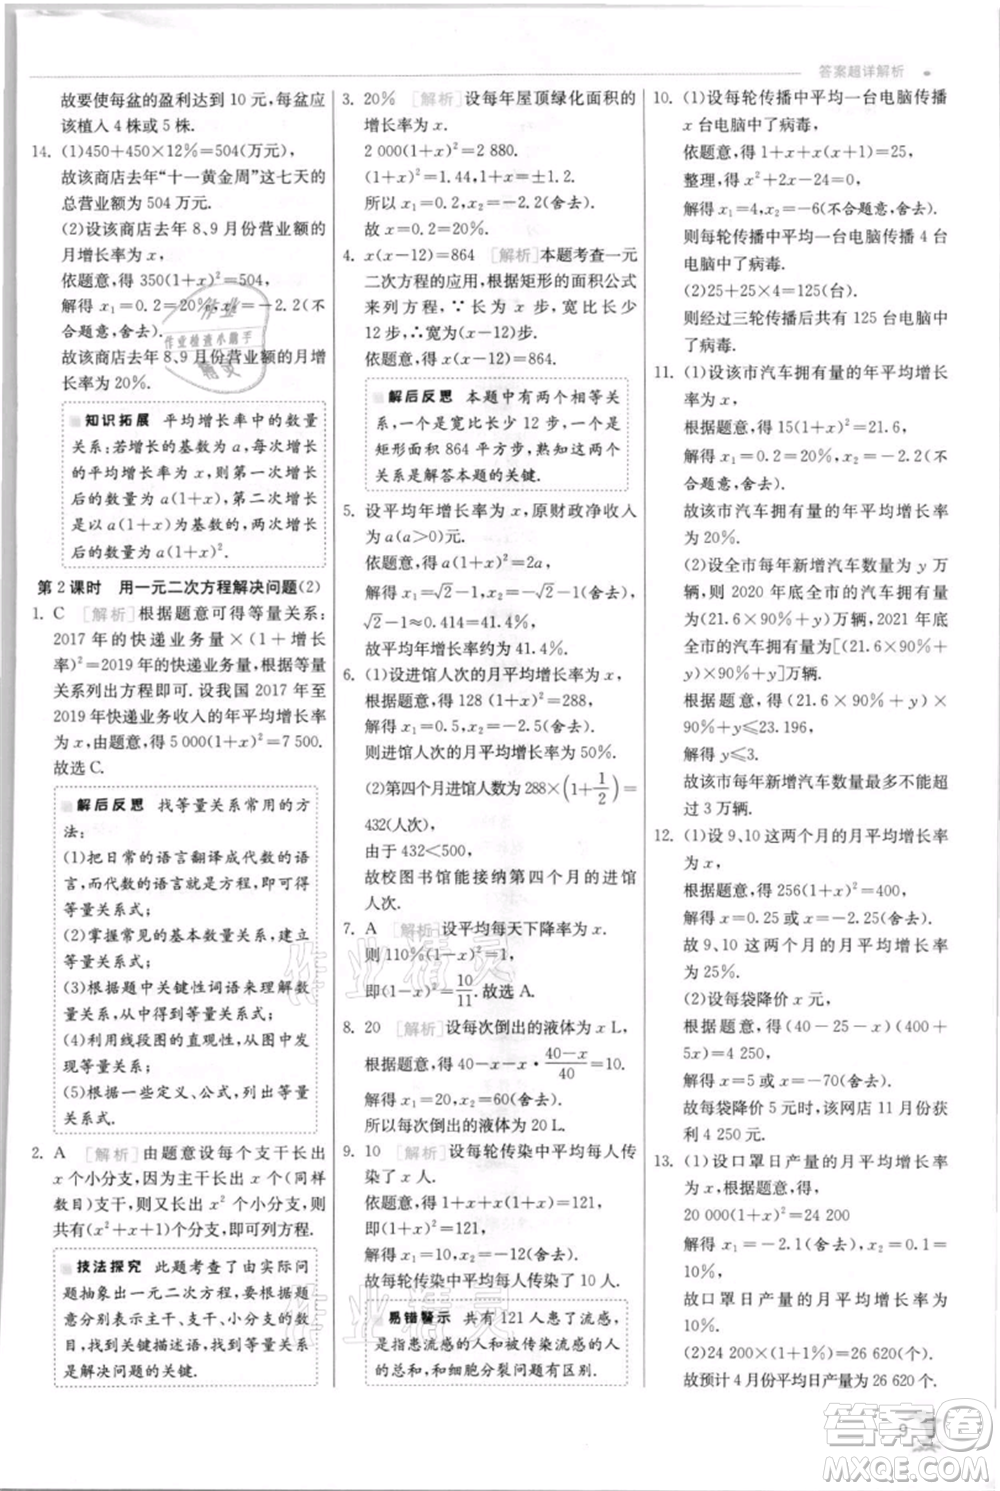 答案超详解析
故要使每盆的盈利达到 10 元,每盆应
该植入 4 株或 5 株.
14. (1)450+450×12%=504(万元),
故该商店去年“十一黄金周”这七天的
总营业额为 504 万元.
(2)设该商店去年 8、9 月份营业额的
月增长率为 x,
依题意,得 350(1+x)²=504,
解得 x₁=0.2=20%,x₂=-2.2(不
合题意,舍去).
故该商店去年 8、9 月份营业额的月增
长率为 20%.
知识拓展 平均增长率中的数量
关系:若增长的基数为 a,每次增长
的平均增长率为 x,则第一次增长
后的数量为 a(1+x),第二次增长
是以 a(1+x)为基数的,两次增长
后的数量为 a(1+x)².
第 2 课时 用一元二次方程解决问题(2)
1. C [解析]根据题意可得等量关系:
2017 年的快递业务量×(1+增长
率)²=2019 年的快递业务量,根据等量
关系列出方程即可. 设我国 2017 年至
2019 年快递业务收入的年平均增长率
为 x,由题意,得 5 000(1+x)²=7 500.
故选 C.
解后反思 找等量关系常用的方
法:
(1)把日常的语言翻译成代数的语
言,而代数的语言就是方程,即可得
等量关系式;
(2)掌握常见的基本数量关系,建立
等量关系式;
(3)根据题中关键性词语的提示,列
出等量关系式;
(4)利用线段图的直观性,从图中
发现等量关系;
(5)根据一些定义、公式,列出等量
关系式.
2. A [解析]由题意设每个支干长出
x 个小分支,因为主干长出 x 个(同样
数目)支干,则又长出 x² 个小分支,则
共有(x²+x+1)个分支,即可列方程.
技法探究 此题考查了由实际问
题抽象出一元二次方程,要根据题
意分别表示主干、支干、小分支的数
目,找到关键描述语,找到等量关系
是解决问题的关键.
3. 20% [解析]设每年屋顶绿化面积的
增长率为 x.
2 000(1+x)²=2 880.
(1+x)²=1.44,1+x=±1.2.
所以 x₁=0.2,x₂=-2.2(舍去).
故 x=0.2=20%.
4. x(x-12)=864 [解析]本题考查一元
二次方程的应用,根据矩形的面积公式
来列方程,∵长为 x 步,宽比长少
12 步∴宽为(x-12)步.
依题意,得 x(x-12)=864.
解后反思 本题中有两个相等关
系,一个是宽比长少 12 步,一个是
矩形面积 864 平方步,熟知以上两个
关系是解答本题的关键.
5. 设平均年增长率为 x,原财政净收入
为 a(a>0)元.
依题意,得 a(1+x)²=2a,
解得 x₁=√2-1,x₂=-√2-1(舍去),
√2-1≈0.414.
故平均年增长率约为 41.4%.
6. (1)设进馆人次的月平均增长率为 x,
根据题意,得 128(1+x)²=288,
解得 x₁=0.5,x₂=-2.5(舍去).
则进馆人次的月平均增长率为 50%.
(2)第四个月进馆人数为 288×(1+1/2)=
432(人次),
由于 432<500,
故校图书馆能接纳第四个月的进馆
人次.
7. A [解析]设平均每天下降率为 x.
则 110%(1-x)²=1,
即(1-x)²=10/11. 故选 A.
8. 20 [解析]设每次倒出的液体为 x L,
根据题意,得 40-x-x·(40-x)/40=10.
解得 x₁=20,x₂=60(舍去).
所以每次倒出的液体为 20 L.
9. 10 [解析]设每轮传染中平均每人传
染了 x 人.
依题意,得 1+x+x(1+x)=121,
即(1+x)²=121,
解得 x₁=10,x₂=-12(舍去).
故每轮传染中平均每人传染了 10 人.
易错警示 共有 121 人患了流感,
是指患流感的人和被传染流感的人
的总和,和细胞分裂问题有区别.
10. (1)设每轮传播中平均一台电脑传播
x 台电脑中了病毒.
依题意,得 1+x+x(1+x)=25,
整理,得 x²+2x-24=0,
解得 x₁=4,x₂=-6(不合题意,舍去).
则每轮传播中平均一台电脑传播 4 台
电脑中了病毒.
(2)25+25×4=125(台).
则经过三轮传播后共有 125 台电脑中
了病毒.
11. (1)设该市汽车拥有量的年平均增长
率为 x,
根据题意,得 15(1+x)²=21.6,
解得 x₁=0.2=20%,x₂=-2.2(不
合题意,舍去).
故该市汽车拥有量的年平均增长率为
20%.
(2)设全市每年新增汽车数量为 y 万
辆,则 2020 年底全市的汽车拥有量为
(21.6×90%+y)万辆,2021 年底
全市的汽车拥有量为[(21.6×90%+
y)×90%+y]万辆.
根据题意,得 (21.6 × 90% + y) ×
90%+y≤23.196,
解得 y≤3.
故该市每年新增汽车数量最多不能超
过 3 万辆.
12. (1)设 9、10 这两个月的月平均增长率
为 x,
根据题意,得 256(1+x)²=400,
解得 x=0.25 或 x=-2.25(舍去).
故 9、10 这两个月的月平均增长率为
25%.
(2)设每袋降价 x 元,
根据题意,得(40-25-x)(400+
5x)=4 250,
解得 x=5 或 x=-70(舍去).
故每袋降价 5 元时,该网店 11 月份获
利 4 250 元.
13. (1)设口罩日产量的月平均增长率为
x,根据题意,得
20 000(1+x)²=24 200
解得 x₁=-2.1(舍去),x₂=0.1=
10%.
故口罩日产量的月平均增长率为
10%.
(2)24 200×(1+0.1)=26 620(个).
故预计 4 月份平均日产量为 26 620 个.
9
作业
作业检查小助手
精灵
作业精灵
作业精灵
答案圈
MXQE.COM